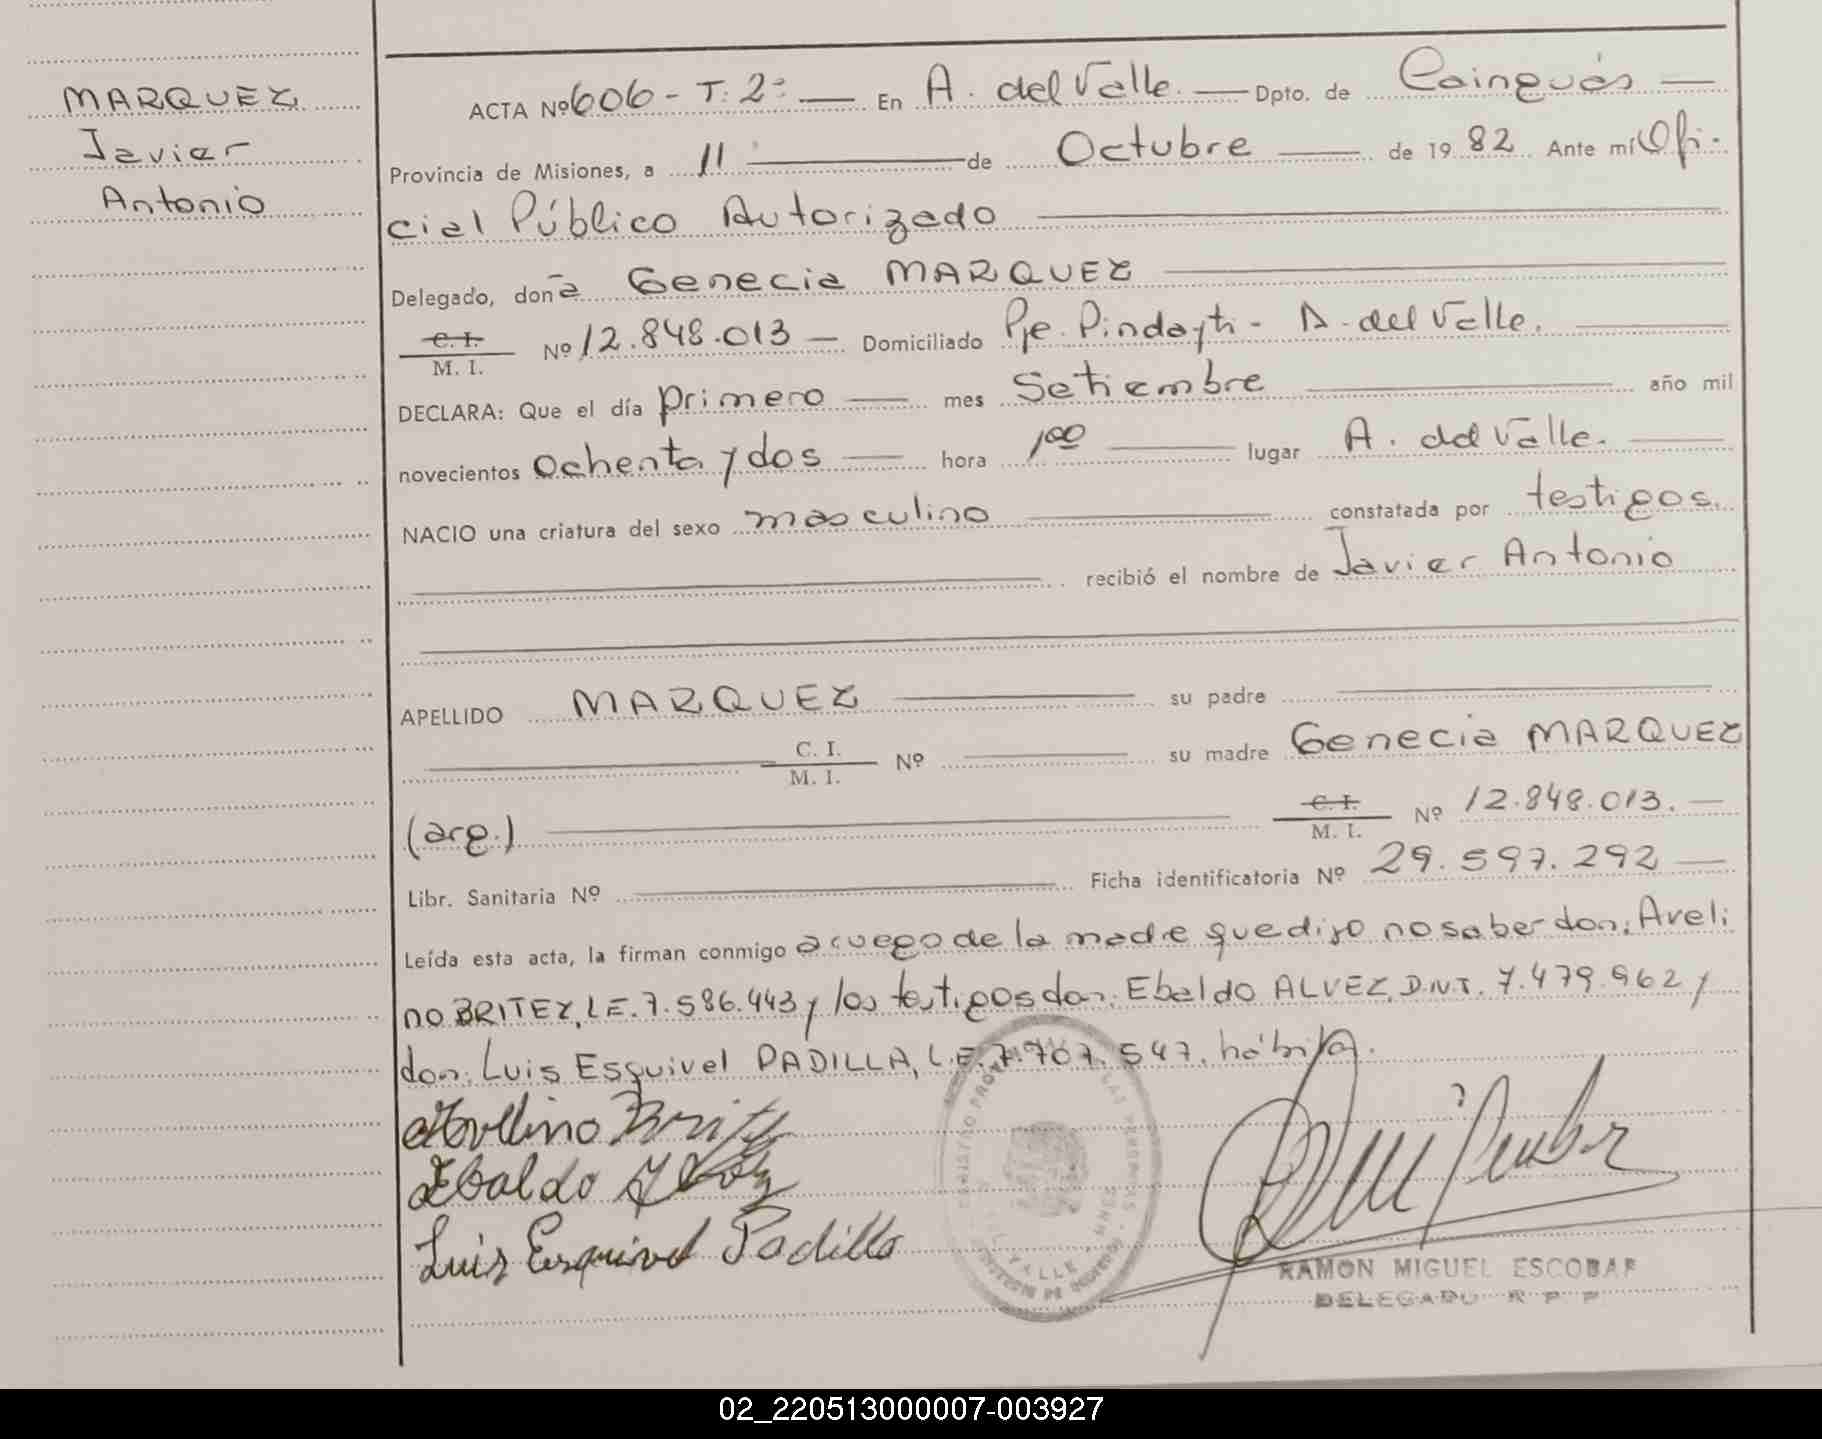 MARQUEZ
Javier
Antonio
ACTA Nº 606 - T: 2º — En A. del Valle. — Dpto. de Cainguás —
Provincia de Misiones, a 11 — de Octubre — de 1982. Ante mí Ofi-
cial Público Autorizado
Delegado, doña Genecia MARQUEZ
C. I.
M. I. Nº 12.848.013 — Domiciliado Pje. Pindayti - A. del Valle.
DECLARA: Que el día primero — mes Setiembre — año mil
novecientos ochenta y dos — hora 100 — lugar A. del Valle.
NACIO una criatura del sexo masculino — constatada por testigos.
recibió el nombre de Javier Antonio
APELLIDO MARQUEZ — su padre
C. I.
M. I. Nº — su madre Genecia MARQUEZ
(arg.) — C. I.
M. I. Nº 12.848.013. —
Libr. Sanitaria Nº — Ficha identificatoria Nº 29.597.292 —
Leída esta acta, la firman conmigo a ruego de la madre que dijo no saber don: Aveli
no BRITEZ, L.E. 7.586.443 y los testigos don: Ebaldo ALVEZ, D.N.I. 7.479.962 y
don: Luis Esquivel PADILLA, L.E. 7.707.547, hábiles.
Avellino Britez
Ebaldo Alvez
Luis Esquivel Padilla
RAMON MIGUEL ESCOBAR
DELEGADO R P P
02_220513000007-003927